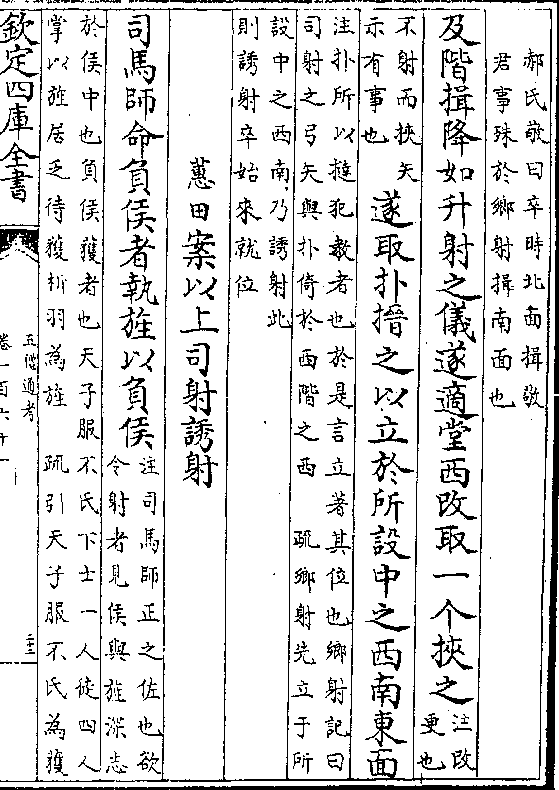 郝氏敬曰卒時北面揖敬
君事殊於鄉射揖南面也
及階揖降如升射之儀遂適堂西改取一个挾之
注改
更也
不射而挾矢
示有事也
遂取扑搢之以立於所設中之西南東面
注扑所以撻犯教者也於是言立著其位也鄉射記曰
司射之弓矢與扑倚於西階之西　疏鄉射先立于所
設中之西南乃誘射此
則誘射卒始來就位
蕙田案以上司射誘射
司馬師命負侯者執旌以負侯
注司馬師正之佐也欲
令射者見侯與旌深志
於侯中也負侯獲者也天子服不氏下士一人徒四人
掌以旌居乏待獲析羽為旌　疏引天子服不氏為獲
欽定四庫全書
五禮通考
卷一百六十一
二十三